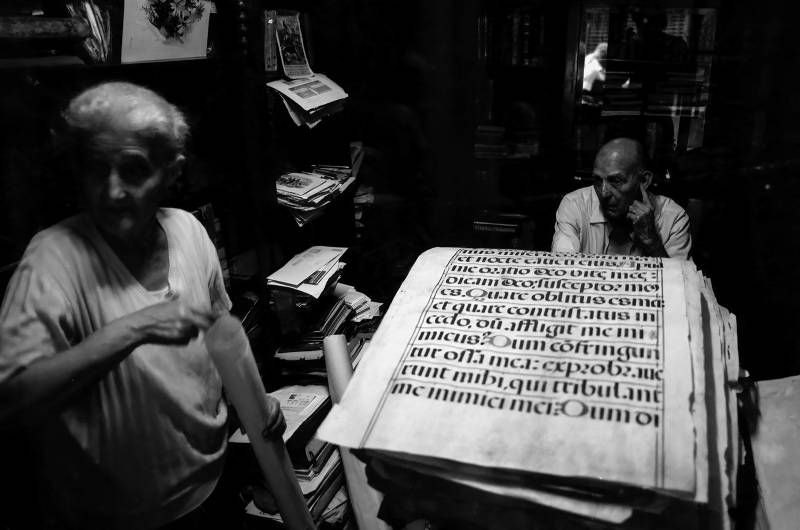 et nocte cantic
me oratio deo vitę meę:
dicam deo, susceptor me⁹
es. Quare oblitus es mei:
et quare contristatus in
cedo, dū affligit me ini
micus? Dum cōfringun
tur ossa mea: exprobrauc
runt mihi, qui tribulant
me inimici mei: Dum di